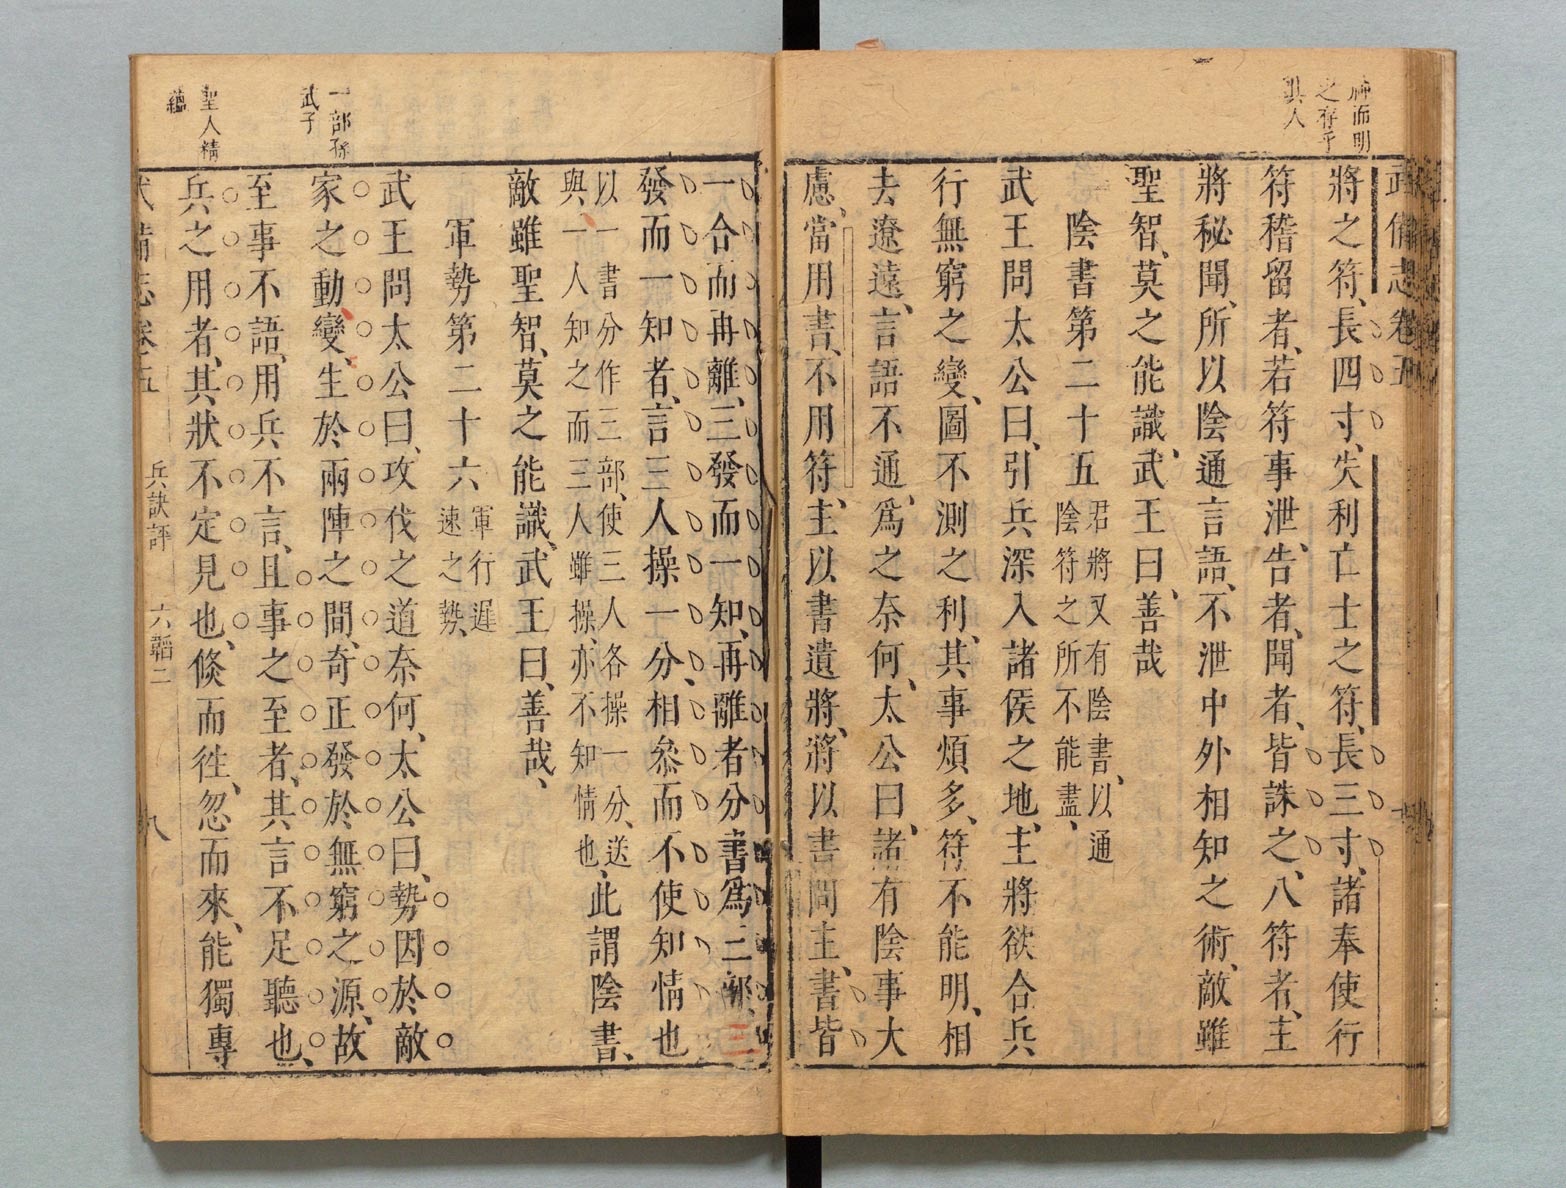 神而明
之存乎
其人
武備志卷五
將之符、長四寸、失利亡士之符、長三寸、諸奉使行
符稽留者、若符事泄、告者、聞者、皆誅之、八符者、主
將秘聞、所以陰通言語、不泄中外相知之術、敵雖
聖智、莫之能識、武王曰、善哉
陰書第二十五 君將又有陰書、以通陰符之所不能盡、
武王問太公曰、引兵深入諸侯之地、主將欲合兵
行無窮之變、圖不測之利、其事煩多、符不能明、相
去遼遠、言語不通、爲之奈何、太公曰、諸有陰事大
慮、當用書、不用符、主以書遺將、將以書問主、書皆
一合而再離、三發而一知、再離者分書爲三部、三
發而一知者、言三人操一分、相叅而不使知情也
以一書分作三部、使三人各操一分、送
與一人知之而三人雖操、亦不知情也、此謂陰書、
敵雖聖智、莫之能識、武王曰、善哉、
軍勢第二十六 軍行遲速之勢、
武王問太公曰、攻伐之道奈何、太公曰、勢因於敵
家之動、變生於兩陣之間、奇正發於無窮之源、故
至事不語、用兵不言、且事之至者、其言不足聽也、
兵之用者、其狀不定見也、倏而徃、忽而來、能獨專
一部孫
武子
聖人精
蘊
武備志卷五 兵訣評 六韜二 八